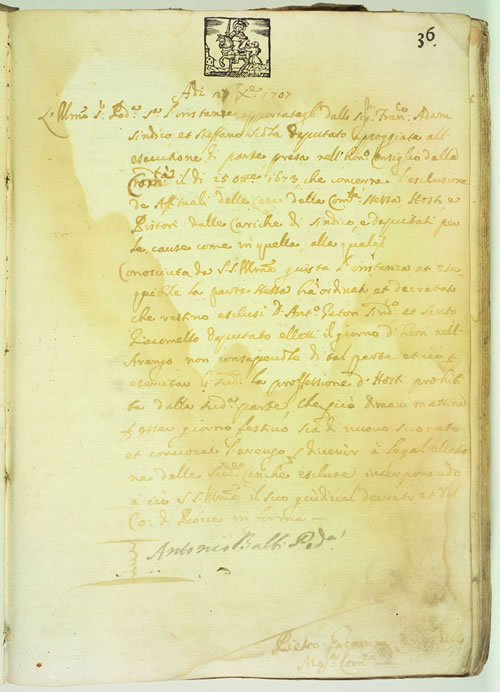 36.
Adi 27 Xbre 1707
L'Illmo Sr Podà sa l'instanza apportatagli dalli Sigri Franco Adami
Sindico et Steffano deputato appoggiata all'
essecutione di parte presa nell'Hondo Consiglio della
Comtà il dì 25 Ottre 1673 che concerne l'esclusione
de Affittuali delle Case della Comtà stessa Hosti e
Pistori dalle Cariche di Sindico, e deputati per
le cause come in quella, alla qual
Conosciuta da S.S. Illma giusta l'instanza et ese-
quibile la parte stessa hà ordinato et decretato
che restino esclusi Dr Anto Gaton et Santo
Giacomello deputato eletti il giorno d'hieri nell'
Arengo non consapevole di tal parte et ciò
esercitar la proffessione d'Hosti prohibi-
ta dalla sudta parte, che perciò dimani mattina
esser giorno festivo sia di nuovo suonato
et convocato l'arengo divenir à legal ellettio
ne delle sudte cariche escluse interponendo
à ciò S.S. Illma il suo giudicial decreto et
Co: di Piove in forma
Antonio Balbi Podà
Pietro